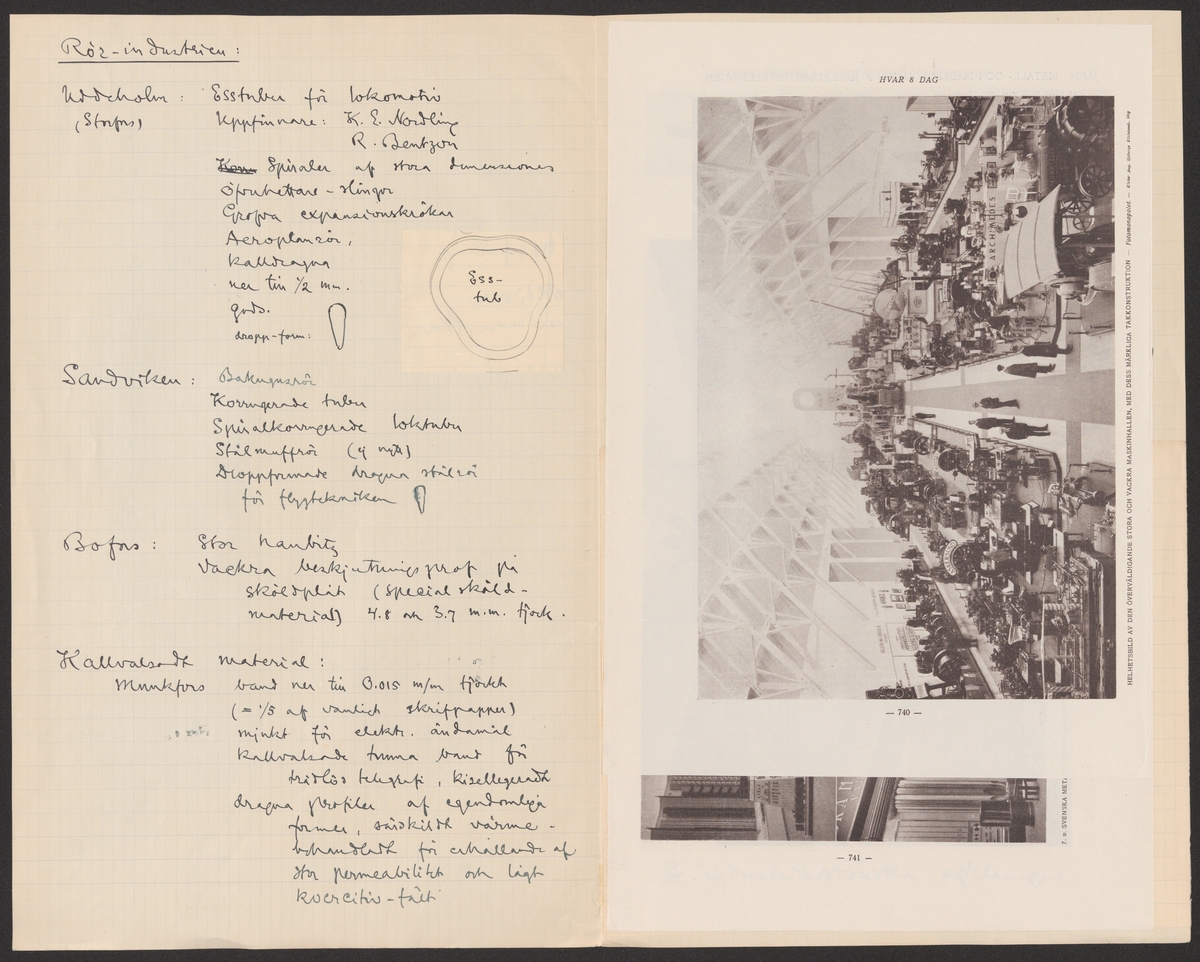 Rör-industrien:
Uddeholm: Esstuber för lokomotiv
(Storfors) Uppfinnare: K. E. Nordling
R. Bentzon
Spiraler af stora dimensioner
öfverhettare-slingor
Grofva expansionskrökar
Aeroplanrör,
kalldragna
ner till 1/2 mm.
gods.
dropp-form:
Ess-
tub
Sandviken:
Korrugerade tuber
Spiralkorrugerade loktuber
Stålmuffrör (ej nytt)
Droppformade dragna stålrör
för flygtekniken
Bofors: Stor haubitz
Vackra beskjutningsprof på
sköldplåt (special sköld-
material) 4.8 och 3.7 m.m. tjock.
Kallvalsadt material:
Munkfors band ner till 0.015 m/m tjockt
(= 1/5 af vanligt skrifpapper)
mjukt för elektr. ändamål
kallvalsade tunna band för
trådlös telegrafi, kisellegeradt
dragna profiler af egendomliga
former, särskildt värme-
behandladt för erhållande af
stor permeabilitet och lågt
koercitiv-fält
HVAR 8 DAG
ARCHIMEDES
HELHETSBILD AV DEN ÖVERVÄLDIGANDE STORA OCH VACKRA MASKINHALLEN, MED DESS MÄRKLIGA TAKKONSTRUKTION — Fotomonopolet —
— 740 —
T. v. SVENSKA META
— 741 —